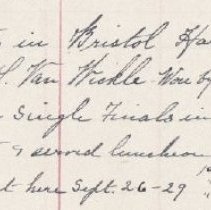 in Bristol Ha
S. Van Wickle Won by
Single Finals in
& served luncheon
t here Sept. 26-29